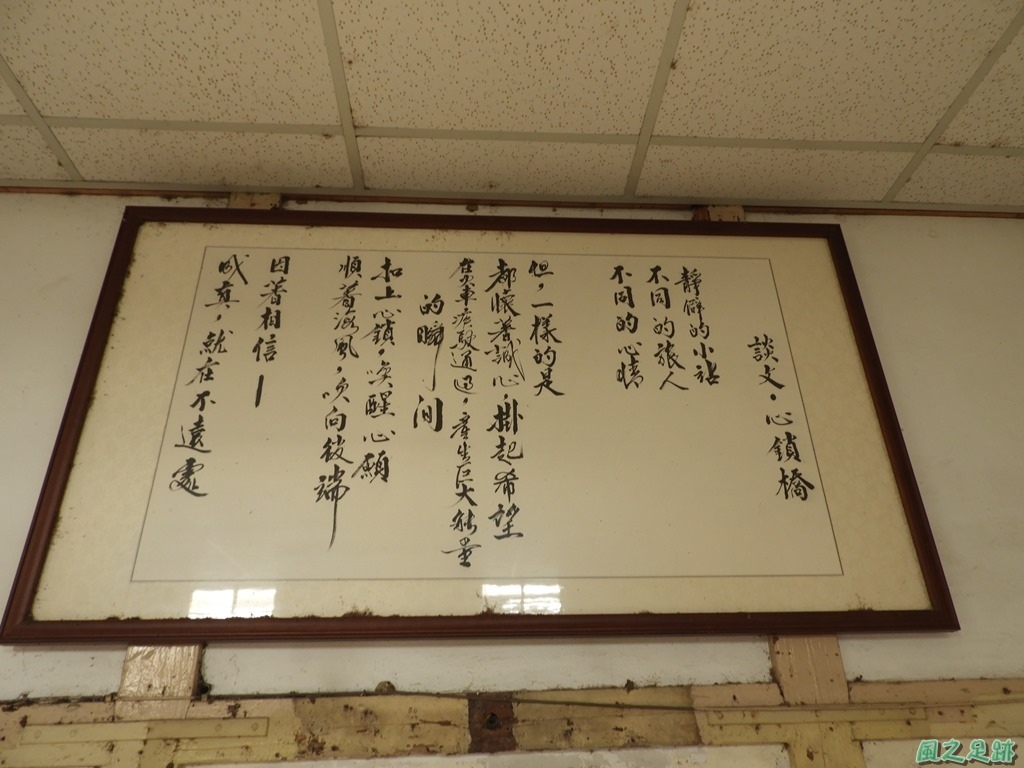 談文，心鎖橋
靜僻的小站
不同的旅人
不同的心情
但，一樣的是
都懷著誠心，掛起希望
在火車疾駛通過，產生巨大能量
的瞬間
扣上心鎖，喚醒心願
順著海風，吹向彼端
因著相信—
成真，就在不遠處
風之足跡